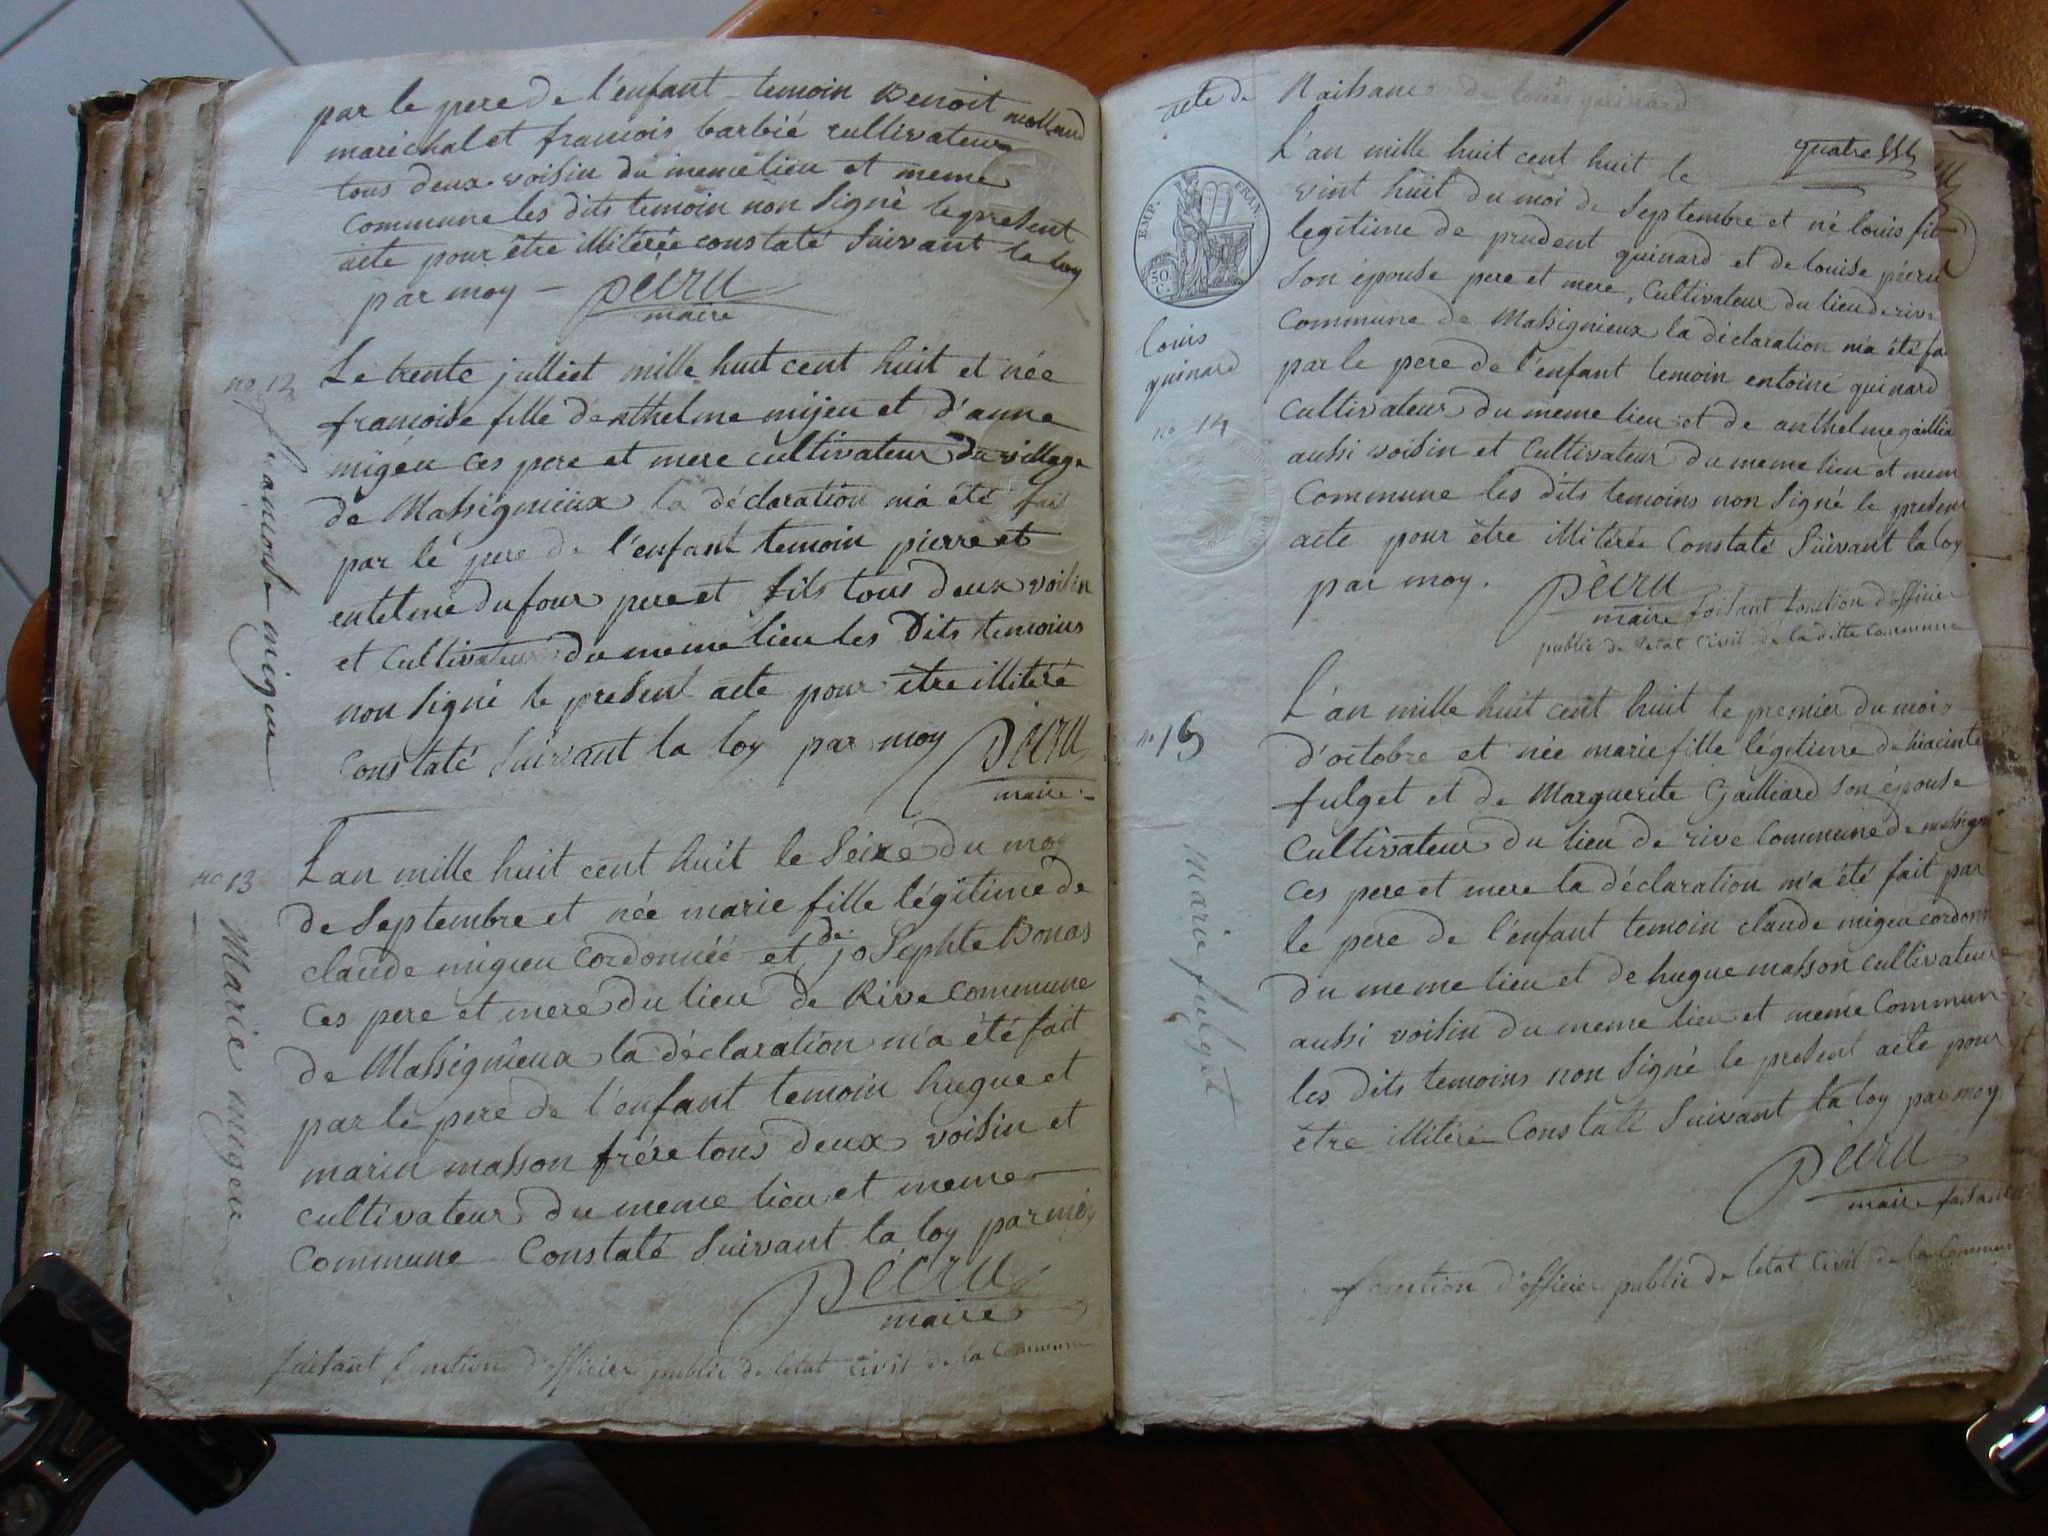 par le pere de l'enfant temoin Benoit molland
maréchal et francois barbié cultivateur
tous deux voisin du meme lieu et meme
Commune les dits temoin non Signé le present
acte pour être illiterée constaté Suivant la loy
par moy — pécru
maire
no 12
francoise migeu
Le trente julliet mille huit cent huit et née
francoise fille d'enthelme mijeu et d'anne
migeu ces pere et mere cultivateur du village
de Massignieux la déclaration m'a été fait
par le pere de l'enfant temoin pierre et
entelme dufour pere et fils tous deux voisin
et Cultivateur du meme lieu les Dits temoins
non Signé le present acte pour être illiteré
Constaté Suivant la loy par moy Pécru
maire
no 13
Marie migeu
L'an mille huit cent huit le Seixe du moy
de Septembre et née marie fille légitime de
claude migieu cordonnié et de joSephte Bonas
Ces pere et mere du lieu de Rive commune
de Massignieux la déclaration m'a été fait
par le pere de l'enfant temoin hugue et
marin masson frére tous deux voisin et
cultivateur du meme lieu et meme
Commune Constaté Suivant la loy par moy
Pécru
maire
faisant fonction d'officier public de létat Civil de la Commune
acte de Naissance de louis quinard
EMP. FRAN.
50 C.
louis
quinard
no 14
L'an mille huit cent huit le quatre
vint huit du moi de Septembre et né louis fil
legitime de prudent quinard et de louise pécru
Son épouse pere et mere, Cultivateur du lieu de rive
Commune de Massignieux la déclaration m'a été fai
par le pere de l'enfant temoin entoine quinard
Cultivateur du meme lieu et de anthelme gaillia
aussi voisin et Cultivateur du meme lieu et mem
Commune les dits temoins non Signé le present
acte pour être illiterée Constaté Suivant la loy
par moy. Pécru
maire faisant fonction d'officier
public de létat Civil de la ditte Commune
no 15
Marie fulget
L'an mille huit cent huit le premier du mois
d'octobre et née marie fille légitime de hiacinte
fulget et de Marguerite Gailliard Son épouse
Cultivateur du lieu de rive Commune de massigni
Ces pere et mere la déclaration m'a été fait par
le pere de l'enfant temoin claude migeu cordonn
du meme lieu et de hugue masson cultivateur
aussi voisin du meme lieu et meme Commun
les dits temoins non Signé le present acte pour
être illiteré Constaté Suivant la loy par moy
Pécru
maire faisant
fonction d'officier public de létat Civil de la Commune